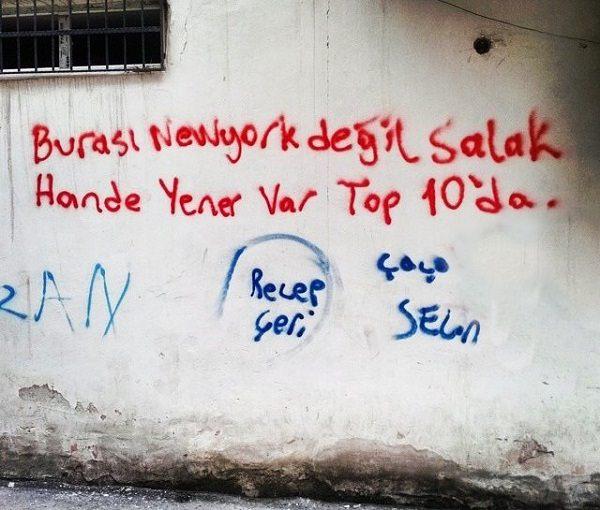 Burası Newyork değil Salak
Hande Yener Var Top 10'da.
zAN
Recep
Çeri
Çoço
SELın